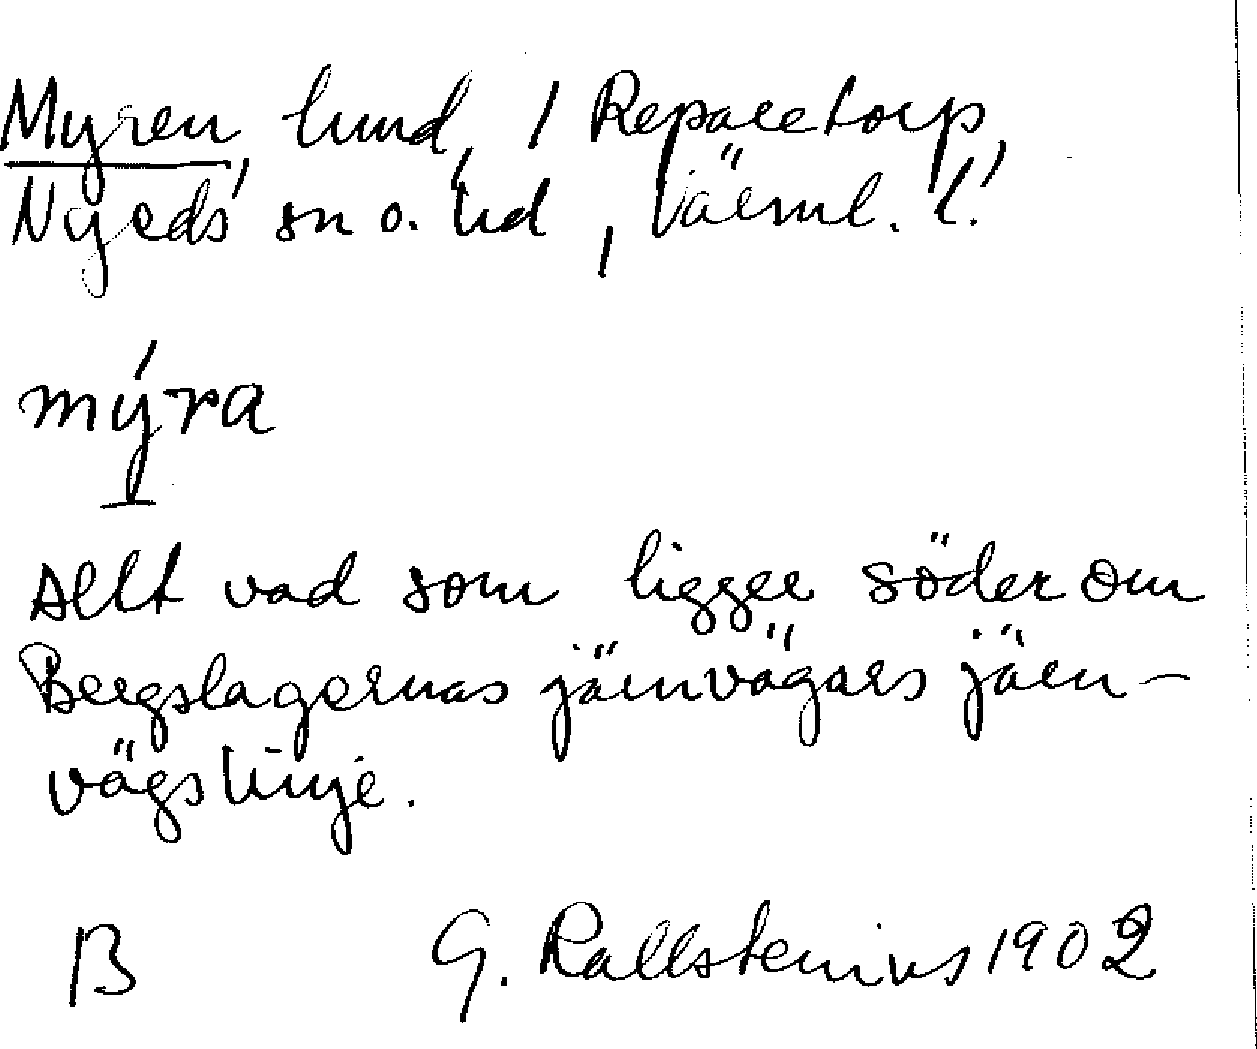 Myren, lund, / Reparetorp,
Nyeds sn o. hd, Värml. l.
mýra
Allt vad som ligger söder om
Bergslagernas järnvägars järn-
vägslinje.
B G. Kallstenius 1902